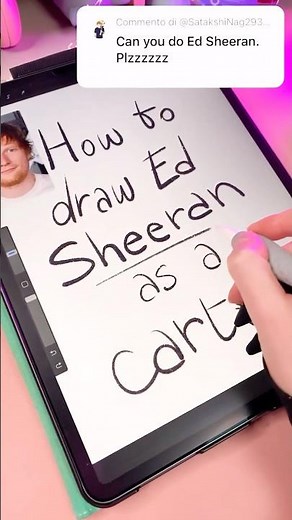 Commento di @SatakshiNag293...
Can you do Ed Sheeran.
Plzzzzzz
How to
draw Ed
Sheeran
as a
cart